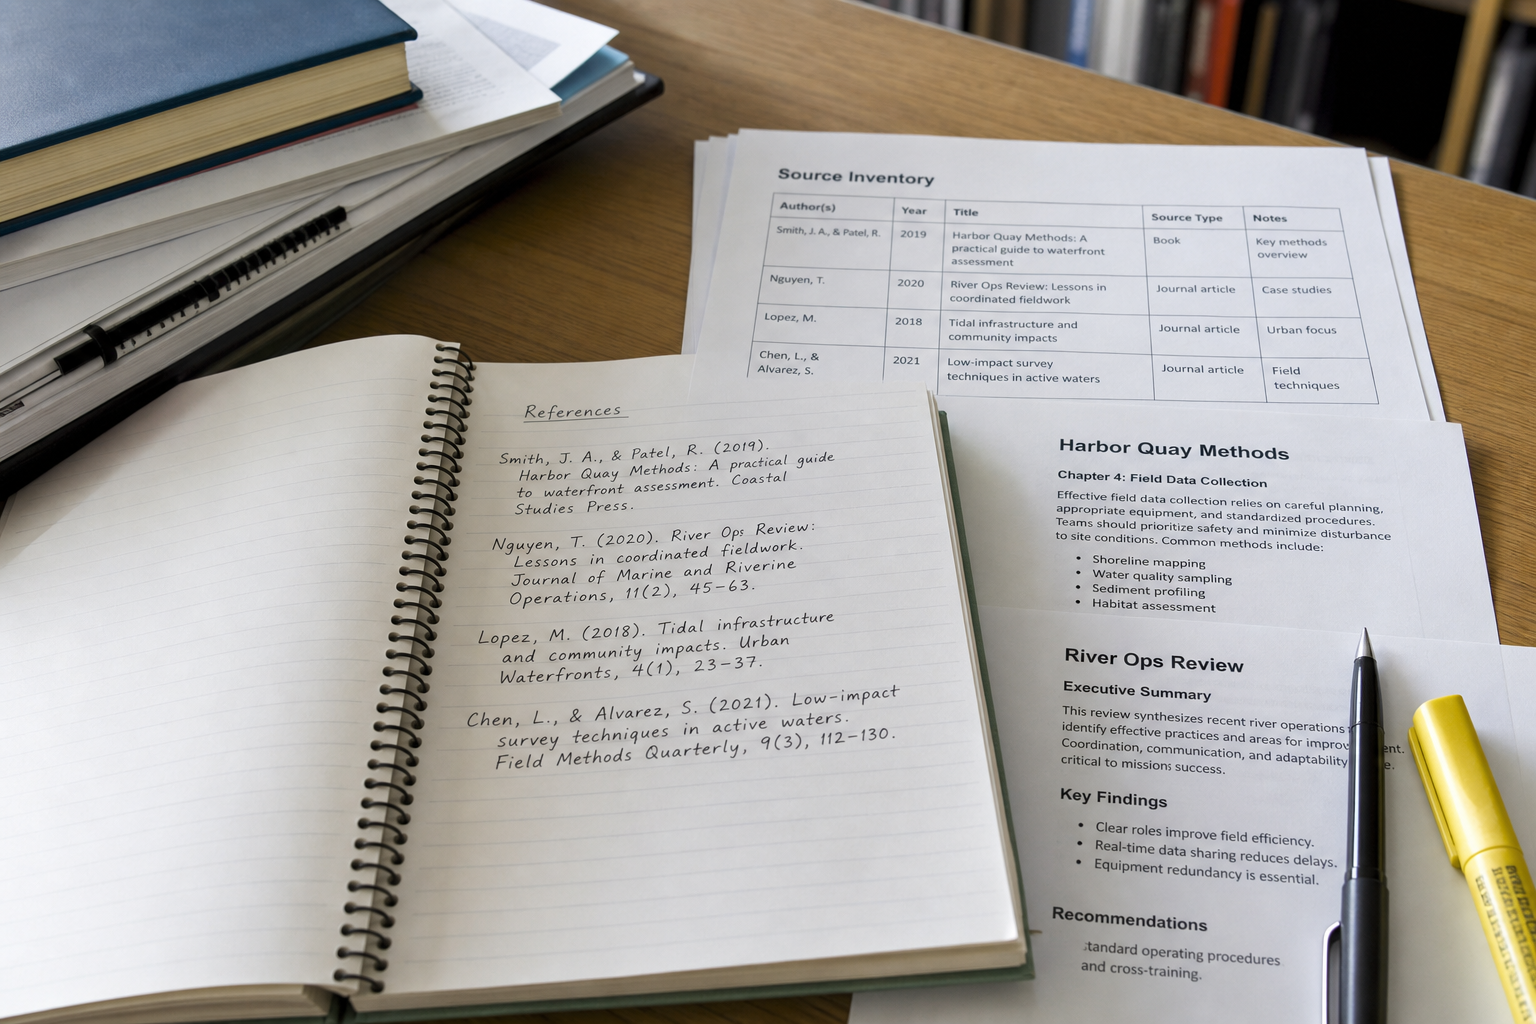 References
Smith, J. A., & Patel, R. (2019).
Harbor Quay Methods: A practical guide
to waterfront assessment. Coastal
Studies Press.
Nguyen, T. (2020). River Ops Review:
Lessons in coordinated fieldwork.
Journal of Marine and Riverine
Operations, 11(2), 45–63.
Lopez, M. (2018). Tidal infrastructure
and community impacts. Urban
Waterfronts, 4(1), 23–37.
Chen, L., & Alvarez, S. (2021). Low-impact
survey techniques in active waters.
Field Methods Quarterly, 9(3), 112–130.
Source Inventory
Author(s) Year Title Source Type Notes
Smith, J. A., & Patel, R. 2019 Harbor Quay Methods: A Book Key methods
practical guide to waterfront overview
assessment
Nguyen, T. 2020 River Ops Review: Lessons in Journal article Case studies
coordinated fieldwork
Lopez, M. 2018 Tidal infrastructure and Journal article Urban focus
community impacts
Chen, L., & 2021 Low-impact survey Journal article Field
Alvarez, S. techniques in active waters techniques
Harbor Quay Methods
Chapter 4: Field Data Collection
Effective field data collection relies on careful planning,
appropriate equipment, and standardized procedures.
Teams should prioritize safety and minimize disturbance
to site conditions. Common methods include:
• Shoreline mapping
• Water quality sampling
• Sediment profiling
• Habitat assessment
River Ops Review
Executive Summary
This review synthesizes recent river operations
identify effective practices and areas for
Coordination, communication, and adaptability
critical to missions success.
Key Findings
• Clear roles improve field efficiency.
• Real-time data sharing reduces delays.
• Equipment redundancy is essential.
Recommendations
operating procedures
and cross-training.